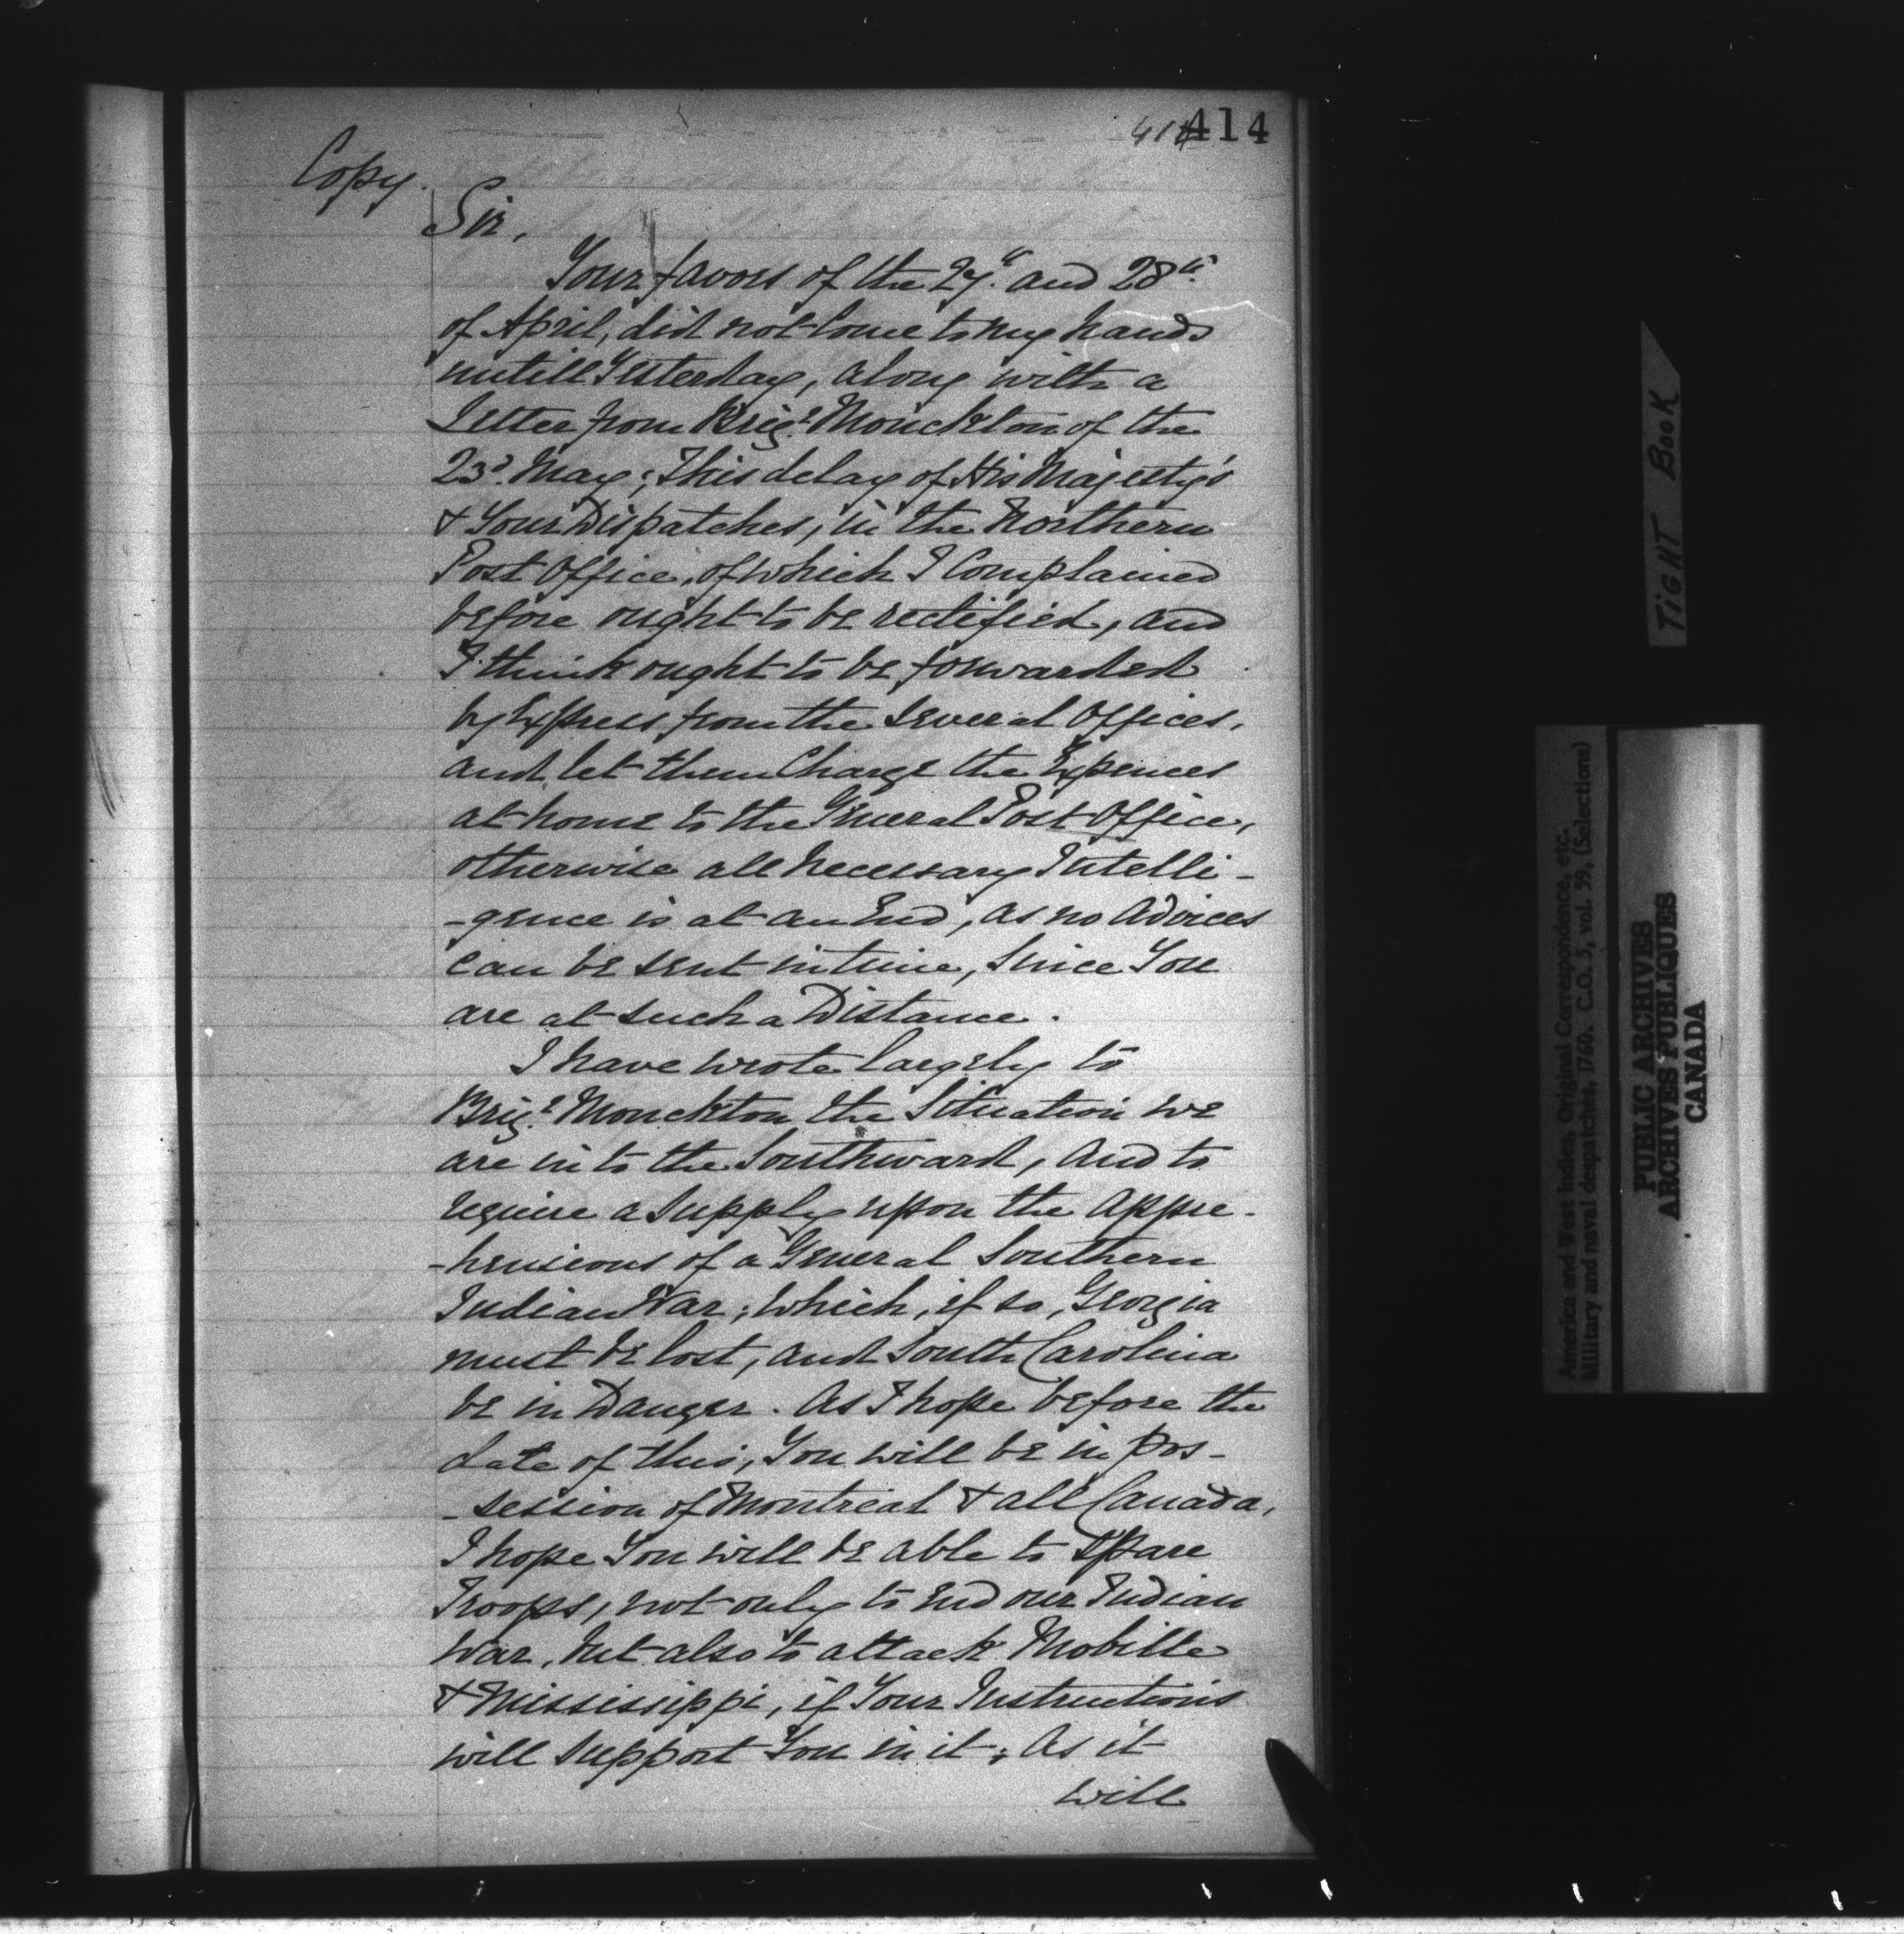 414
414
Copy.
Sir,
Your favors of the 27th. and 28th.
of April, did not Come to my hands
untill Yesterday, along with a
Letter from Brigr. Monckton of the
23d. May; This delay of His Majesty's
& Your Dispatches, in the Northern
Post Office, of which I Complained
before ought to be rectified, and
I think ought to be forwarded
by Express from the several Offices,
and let them Charge the Expences
at home to the General Post Office,
otherwise all necessary Intelli-
-gence is at an End, as no Advices
Can be sent in time, Since You
are at such a Distance.
I have wrote largely to
Brigr. Monckton, the Situation we
are in to the Southward, and to
require a Supply upon the Appre-
-hensions of a General Southern
Indian War; which, if so, Georgia
must be lost, and South Carolina
be in Danger. As I hope before the
date of this, You will be in pos-
-session of Montreal & all Canada,
I hope You will be able to Spare
Troops, not only to End our Indian
War, but also to attack Mobille
& Mississippi, if Your Instructions
will support You in it; As it
will
TIGHT BOOK
America and West Indies, Original Correspondence, etc.
Military and naval despatches, 1760. C.O. 5, vol. 59, (Selections)
PUBLIC ARCHIVES
ARCHIVES PUBLIQUES
CANADA